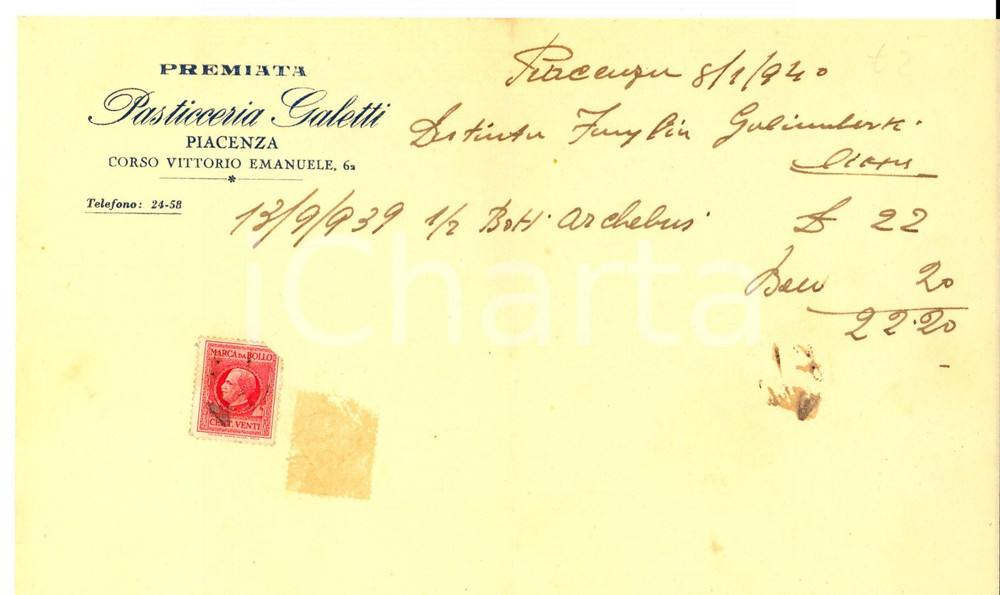 PREMIATA
Pasticceria Galetti
PIACENZA
CORSO VITTORIO EMANUELE, 62
Telefono: 24-58
Piacenza 8/1/940
Distinta Famiglia
13/9/939 1/2 Bott. Archebus £ 22
20
22.20
iCharta
MARCA DA BOLLO
CENT. VENTI